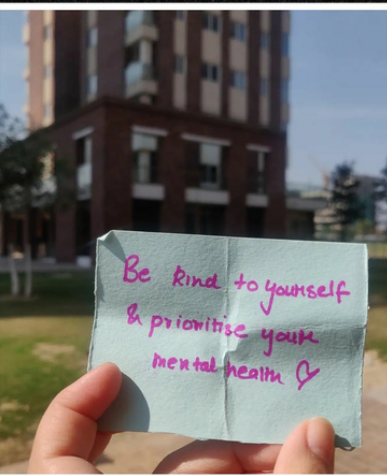 Be kind to yourself
& prioritise your
mental health ♡